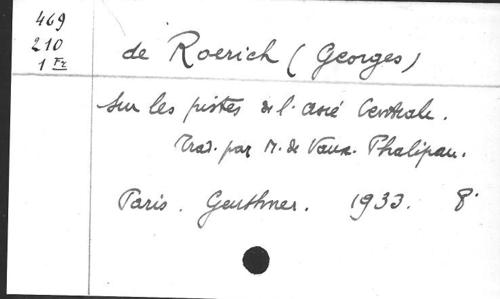 469
210
1 Fr
de Roerich (Georges)
Sur les pistes de l'Asie Centrale.
Trad. par M. de Vaux-Phalipau.
Paris. Geuthner. 1933. 8°